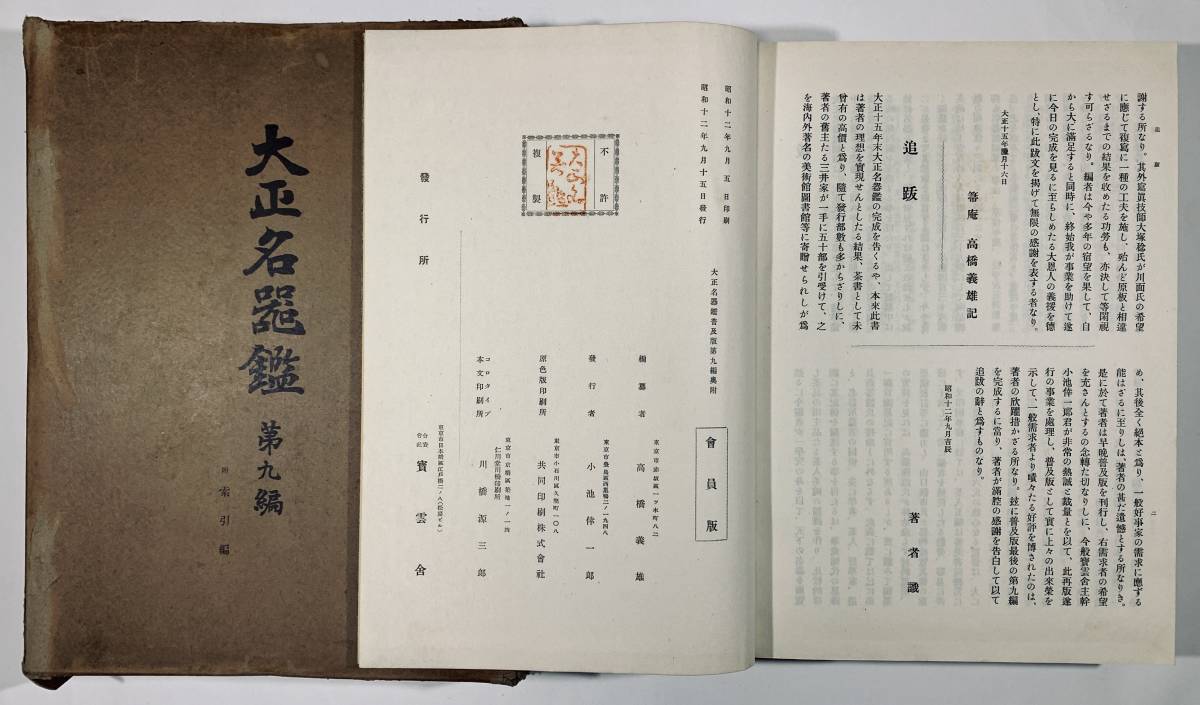 大正名器鑑 第九編
附索引編
追跋
二
謝する所なり。其外寫眞技師大塚稔氏が川面氏の希望
に應じて複寫に一種の工夫を施し、殆んど原板と相違
せざるまでの結果を收めたる功勞も、亦決して等閑視
す可らざるなり。編者は今や多年の宿望を果して、自
から大に滿足すると同時に、終始我が事業を助けて遂
に今日の完成を見るに至らしめたる大恩人の義援を德
とし、特に此跋文を揭げて無限の感謝を表する者なり。
大正十五年臘月十六日
箒庵 高橋義雄記
追跋
大正十五年末大正名器鑑の完成を告くるや、本來此書
は著者の理想を實現せんとしたる結果、茶書として未
曾有の高價と爲り、隨て發行部數も多からざりしに、
著者の舊主たる三井家が一手に五十部を引受けて、之
を海內外著名の美術館圖書館等に寄贈せられしが爲
め、其後全く絕本と爲り、一般好事家の需求に應ずる
能はざるに至りしは、著者の甚だ遺憾とする所なりき。
是に於て著者は早晚普及版を刊行し、右需求者の希望
を充さんとするの念轉た切なりしに、今般寶雲舍主幹
小池倖一郞君が非常の熱誠と裁量とを以て、此再版遂
行の事業を處理し、普及版として實に上々の出來榮を
示して、一般需求者より嘖々たる好評を博されたのは、
著者の欣躍措かざる所なり。玆に普及版最後の第九編
を完成するに當り、著者が滿腔の感謝を告白して以て
追跋の辭と爲すものなり。
昭和十二年九月吉辰
著者識
昭和十二年九月五日印刷
昭和十二年九月十五日發行
大正名器鑑普及版第九編奧附
會員版
不許
複製
大正名器鑑
編纂者 東京市赤坂區一ツ木町八二 高橋義雄
發行者 東京市豐島區西巢鴨二ノ一九四八 小池倖一郞
原色版印刷所 東京市小石川區久堅町一〇八 共同印刷株式會社
コロタイプ
本文印刷所 東京市京橋區築地一ノ一四 仁川堂川橋印刷所 川橋源三郞
發行所
合資會社 寶雲舍